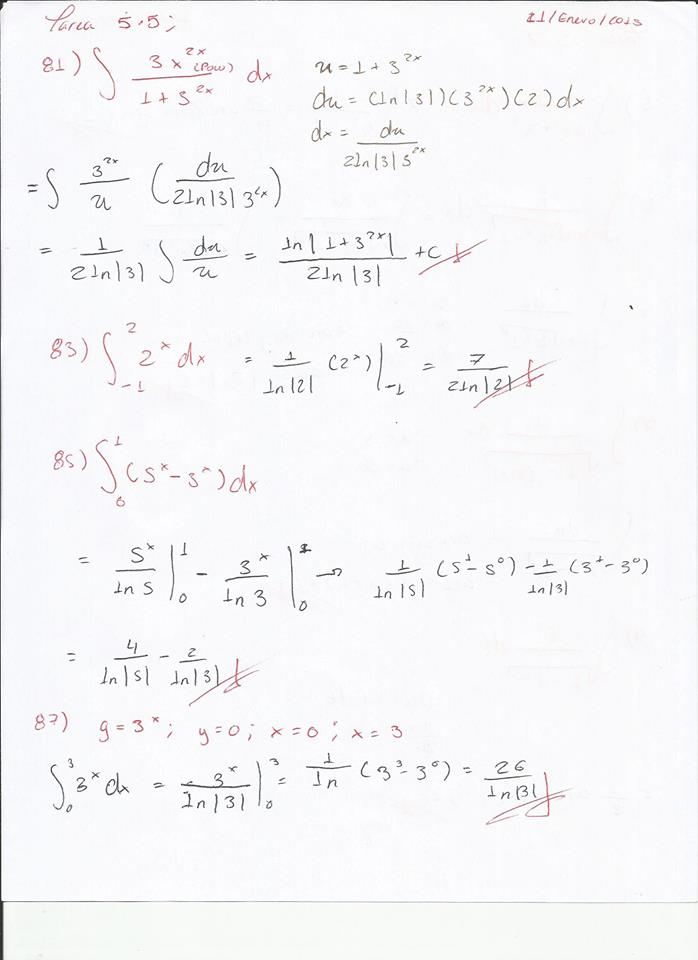 Tarea 5.5;
11/Enero/2013
81) ∫ 3x^2x (Pow) / 1+3^2x dx
u = 1+3^2x
du = (ln|3|)(3^2x)(2)dx
dx = du / 2ln|3|3^2x
= ∫ 3^2x / u (du / 2ln|3|3^2x)
= 1 / 2ln|3| ∫ du / u = ln|1+3^2x| / 2ln|3| +c
83) ∫_-1^2 2^x dx = 1 / ln|2| (2^x) |_-1^2 = 7 / 2ln|2|
85) ∫_0^1 (5^x-3^x)dx
= 5^x / ln5 |_0^1 - 3^x / ln3 |_0^1 → 1 / ln|5| (5^1-5^0) - 1 / ln|3| (3^1-3^0)
= 4 / ln|5| - 2 / ln|3|
87) y=3^x; y=0; x=0; x=3
∫_0^3 3^x dx = 3^x / ln|3| |_0^3 = 1 / ln (3^3-3^0) = 26 / ln|3|